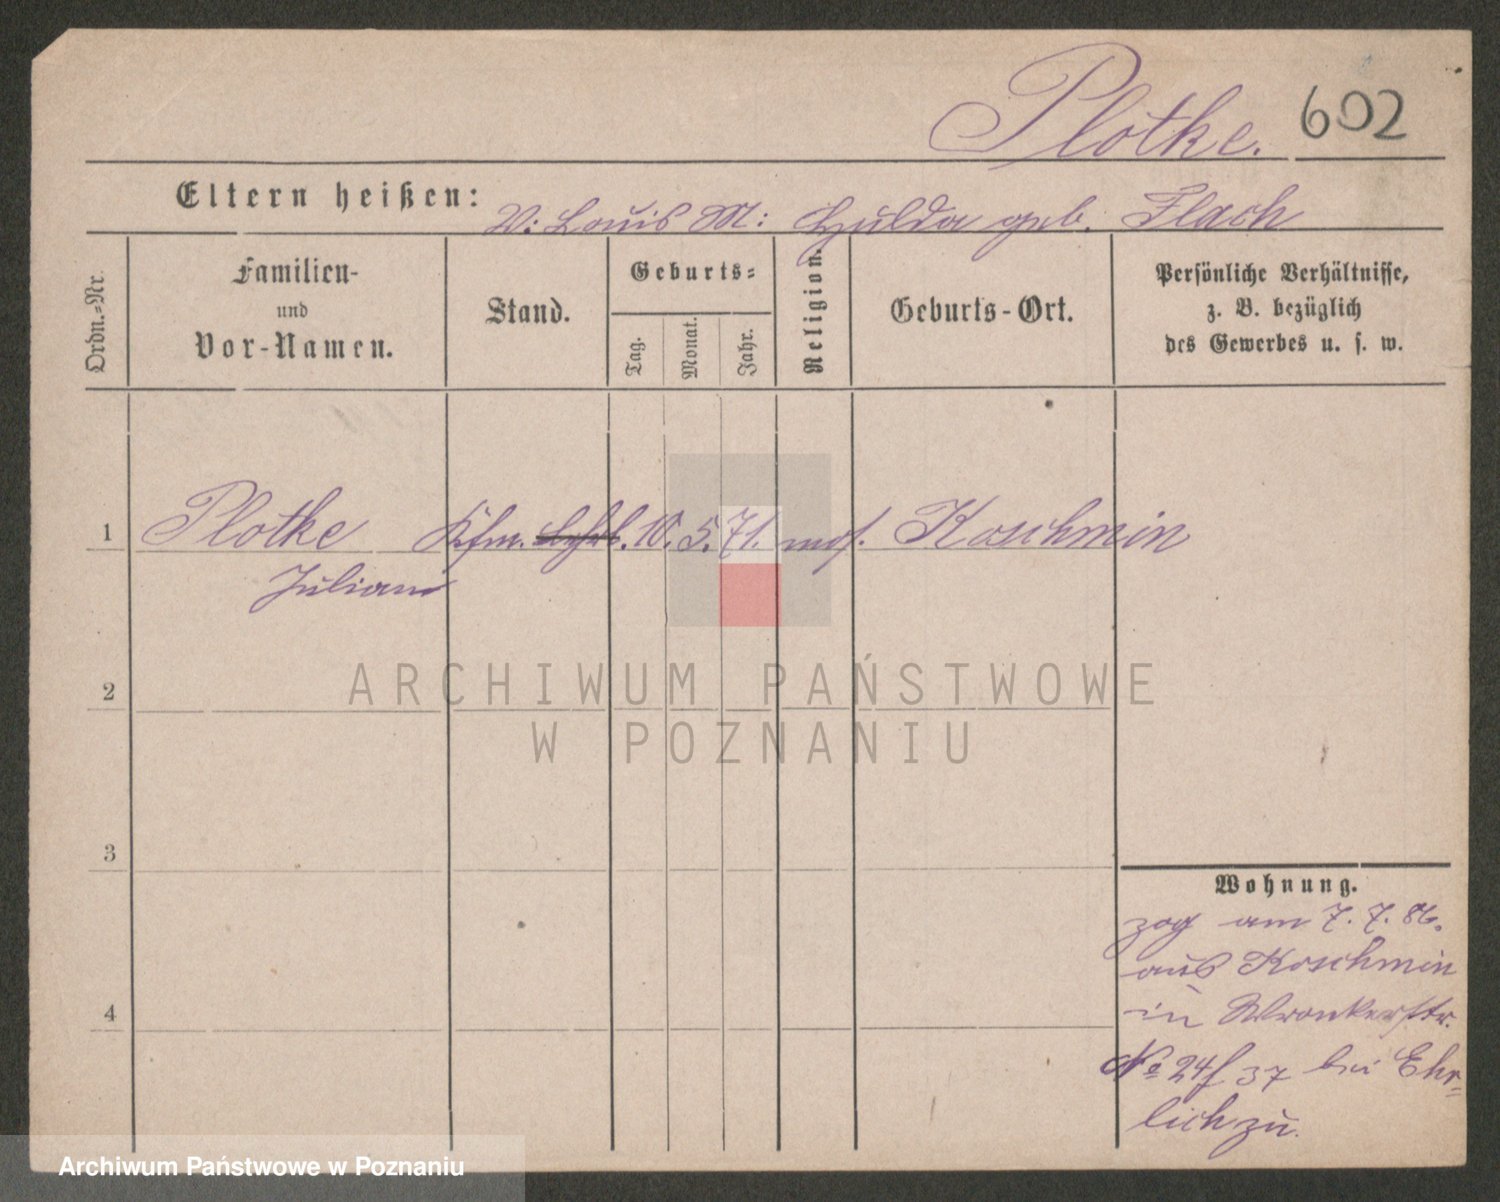 Plotke. 602
Eltern heißen: V: Louis M: Hulda geb. Flach
Ordn.=Nr.
Familien-
und
Vor-Namen.
Stand.
Geburts=
Tag.
Monat.
Jahr.
Religion.
Geburts-Ort.
Persönliche Verhältnisse,
z. B. bezüglich
des Gewerbes u. s. w.
1 Plotke Kfm. 10. 5. 71. mos. Koschmin
Julian
2
3
4
Wohnung.
zog am 7. 7. 86.
aus Koschmin
in Wronkerstr.
No 24/37 bei Ehr=
lich zu.
ARCHIWUM PAŃSTWOWE
W POZNANIU
Archiwum Państwowe w Poznaniu